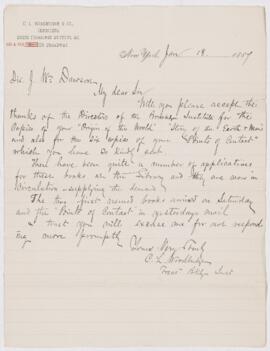 C. L. WOODBRIDGE & CO.
New York Jan 18. 1887
Dr. J. Wm Dawson
My dear Sir
Will you please accept the
thanks of the Directors of the Institute for the
Copies of your "Origin of the World" "Story of the Earth & Man"
and also for the Six copies of your "Points of Contact"
which you have so kindly sent.
There have been quite a number of applications
for these books at the Library and they are now in
Circulation supplying the demand.
The two first named books arrived on Saturday
and the "Points of Contact" in yesterdays mail
I trust you will excuse me for not respond
ing more promptly
Yours Very Truly
C. L. Woodbridge